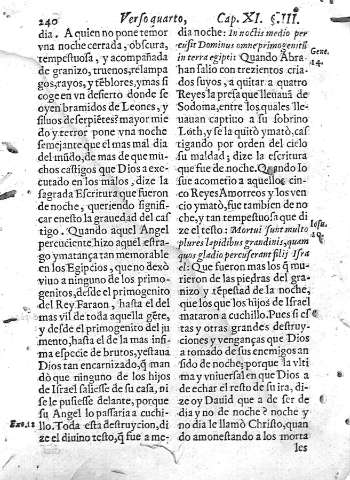 240 Verso quarto, Cap. XI. §. III.
dia. A quien no pone temor
vna noche cerrada, obscura,
tempestuosa, y acompañada
de granizo, truenos, relampa
gos, rayos, y tẽblores, y mas si
coge en vn desierto donde se
oyen bramidos de Leones, y
siluos de serpiẽtes? mayor mie
do y terror pone vna noche
semejante que el mas mal dia
del mũdo, de mas de que mu-
chos castigos que Dios a exe-
cutado en los malos, dize la
sagrada Escritura que fueron
de noche, queriendo signifi-
car en esto la grauedad del cas
tigo. Quando aquel Angel
percuciente hizo aquel estra-
go y matança tan memorable
en los Egipcios, que no dexò
viuo a ninguno de los primo-
genitos, desde el primogenito
del Rey Faraon, hasta el del
mas vil de toda aquella gẽte,
y desde el primogenito del ju
mento, hasta el de la mas infi-
ma especie de brutos, y estaua
Dios tan encarnizado, q̃ man
dò que ninguno de los hijos
de Israel saliesse de su casa, ni
se le pusiesse delante, porque
su Angel lo passaria a cuchi-
Exo. 12 llo. Toda esta destruycion, di
ze el diuino testo, q̃ fue a me-
dia noche: In noctis medio per
cusit Dominus omne primogenitũ
in terra egipti: Quando Abra- Gene.
han salio con trezientos cria- 14.
dos suyos, a quitar a quatro
Reyes la presa que lleuauã de
Sodoma, entre los quales lle-
uauan captiuo a su sobrino
Loth, y se la quitò y matò, cas
tigando por orden del cielo
su maldad; dize la escritura
que fue de noche. Quando lo
sue acometio a aquellos cin-
co Reyes Amorreos y los ven
cio y matò, fue tambien de no
che, y tan tempestuosa que di
ze el testo: Mortui sunt multo Iosu.
plures lapidibus grandinis, quam 10.
quos gladio percuserant filij Isra
el: Que fueron mas los q̃ mu-
rieron de las piedras del gra-
nizo y tẽpestad de la noche,
que los que los hijos de Israel
mataron a cuchillo. Pues si es
tas y otras grandes destruy-
ciones y venganças que Dios
a tomado de sus enemigos an
sido de noche; porque la vlti
ma y vniuersal en que Dios a
de echar el resto de su ira, di-
ze oy Dauid que a de ser de
dia y no de noche è noche y
no dia le llamò Christo, quan
do amonestando a los morta
les